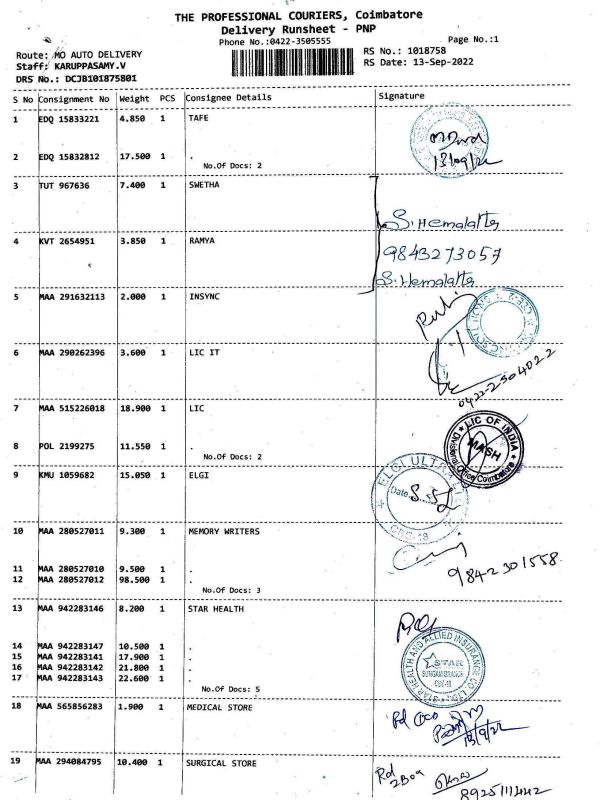 THE PROFESSIONAL COURIERS, Coimbatore
Delivery Runsheet - PNP
Phone No.:0422-3505555
Page No.:1
Route: MO AUTO DELIVERY
RS No.: 1018758
Staff: KARUPPASAMY.V
RS Date: 13-Sep-2022
DRS No.: DCJB101875801
S No Consignment No Weight PCS Consignee Details Signature
1 EDQ 15833221 4.850 1 TAFE
13/09/22
2 EDQ 15832812 17.500 1 .
No.Of Docs: 2
3 TUT 967636 7.400 1 SWETHA
S. Hemalatha
4 KVT 2654951 3.850 1 RAMYA
9843273057
S. Hemalatha
5 MAA 291632113 2.000 1 INSYNC
6 MAA 290262396 3.600 1 LIC IT
0422-2504022
7 MAA 515226018 18.900 1 LIC
LIC OF INDIA
MASH
Divisional Office Coimbatore
8 POL 2199275 11.550 1 .
No.Of Docs: 2
9 KMU 1059682 15.050 1 ELGI
ELGI ULTRA
Date
CBE-18
10 MAA 280527011 9.300 1 MEMORY WRITERS
9842301558
11 MAA 280527010 9.500 1 .
12 MAA 280527012 98.500 1 .
No.Of Docs: 3
13 MAA 942283146 8.200 1 STAR HEALTH
STAR HEALTH AND ALLIED INSURANCE CO. LTD.
STAR
SUNGAM BRANCH
CBE-18
14 MAA 942283147 10.500 1 .
15 MAA 942283141 17.900 1 .
16 MAA 942283142 21.800 1 .
17 MAA 942283143 22.600 1 .
No.Of Docs: 5
18 MAA 565856283 1.900 1 MEDICAL STORE
13/9/22
19 MAA 294084795 10.400 1 SURGICAL STORE
Rd